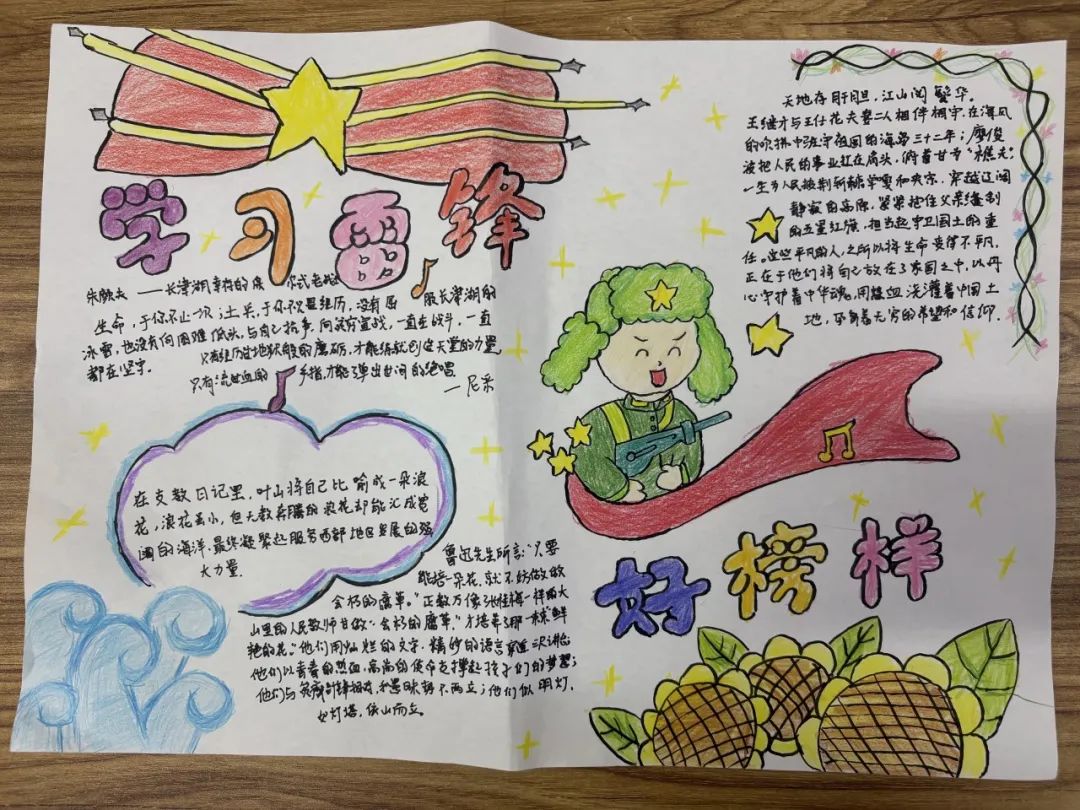 学习雷锋
朱彦夫——长津湖幸存的保 尔式老
生命,于你不止一次;士兵,于你不只是经历,没有屈 服长津湖的
冰雪,也没有向困难低头,与自己抗争,向贫穷宣战,一直在战斗,一直
都在坚守。
只有经历过地狱般的磨砺,才能练就创造天堂的力量,
只有流过血的 手指,才能弹出世间的绝唱
—尼采
在支教日记里,叶山将自己比喻成一朵浪
花,浪花虽小,但无数奔腾的浪花却能汇成宽
阔的海洋.最终凝聚起服务西部地区发展的强
大力量.
鲁迅先生所言:"只要
能培一朵花,就不妨做做
会朽的腐草。"正数万像张桂梅一样的大
山里的人民教师甘做"会朽的腐草"才培养了那一株"鲜
艳的花。"他们用灿烂的文字,精妙的语言 讲述;
他们以青春的热血,高尚的使命支撑起孩子们的梦想;
他们与 不两立;他们似明灯,
如灯塔,依山而立。
天地存肝胆,江山阅繁华。
王继才与王仕花夫妻二人相伴相守,在海风
的吹拂中驻守祖国的海岛三十二年;廖俊
波把人民的事业扛在肩头,俯首甘为"樵夫"
一生为人民披荆斩棘 穿越辽阔
静寂的高原,紧紧抱住父亲缝制
的五星红旗,担当起守卫国土的重
任。这些平凡的人,之所以将生命变得不平凡,
正在于他们将自己放在了家国之中,以丹
心守护着中华魂,用热血浇灌着中国土
地,孕育着无穷的希望和信仰.
好榜样